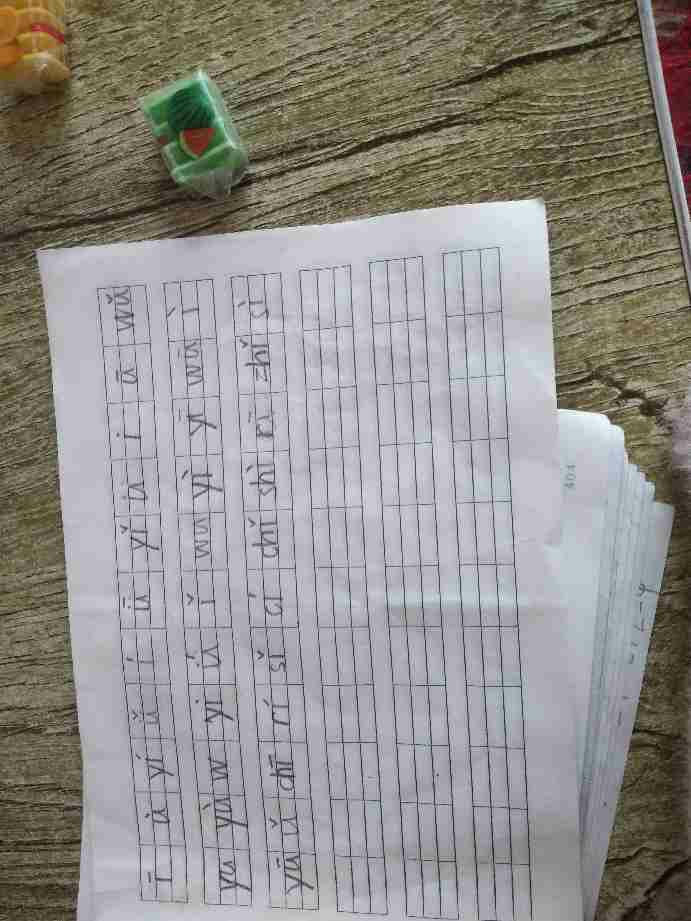 ī ù yí ǔ í ū yǐ ù i ū wǔ
yu yù w yi ú ǐ wu yì yī wū ì
yū ǔ chī rí sǐ cí chǐ shì rī zhǐ sì
404